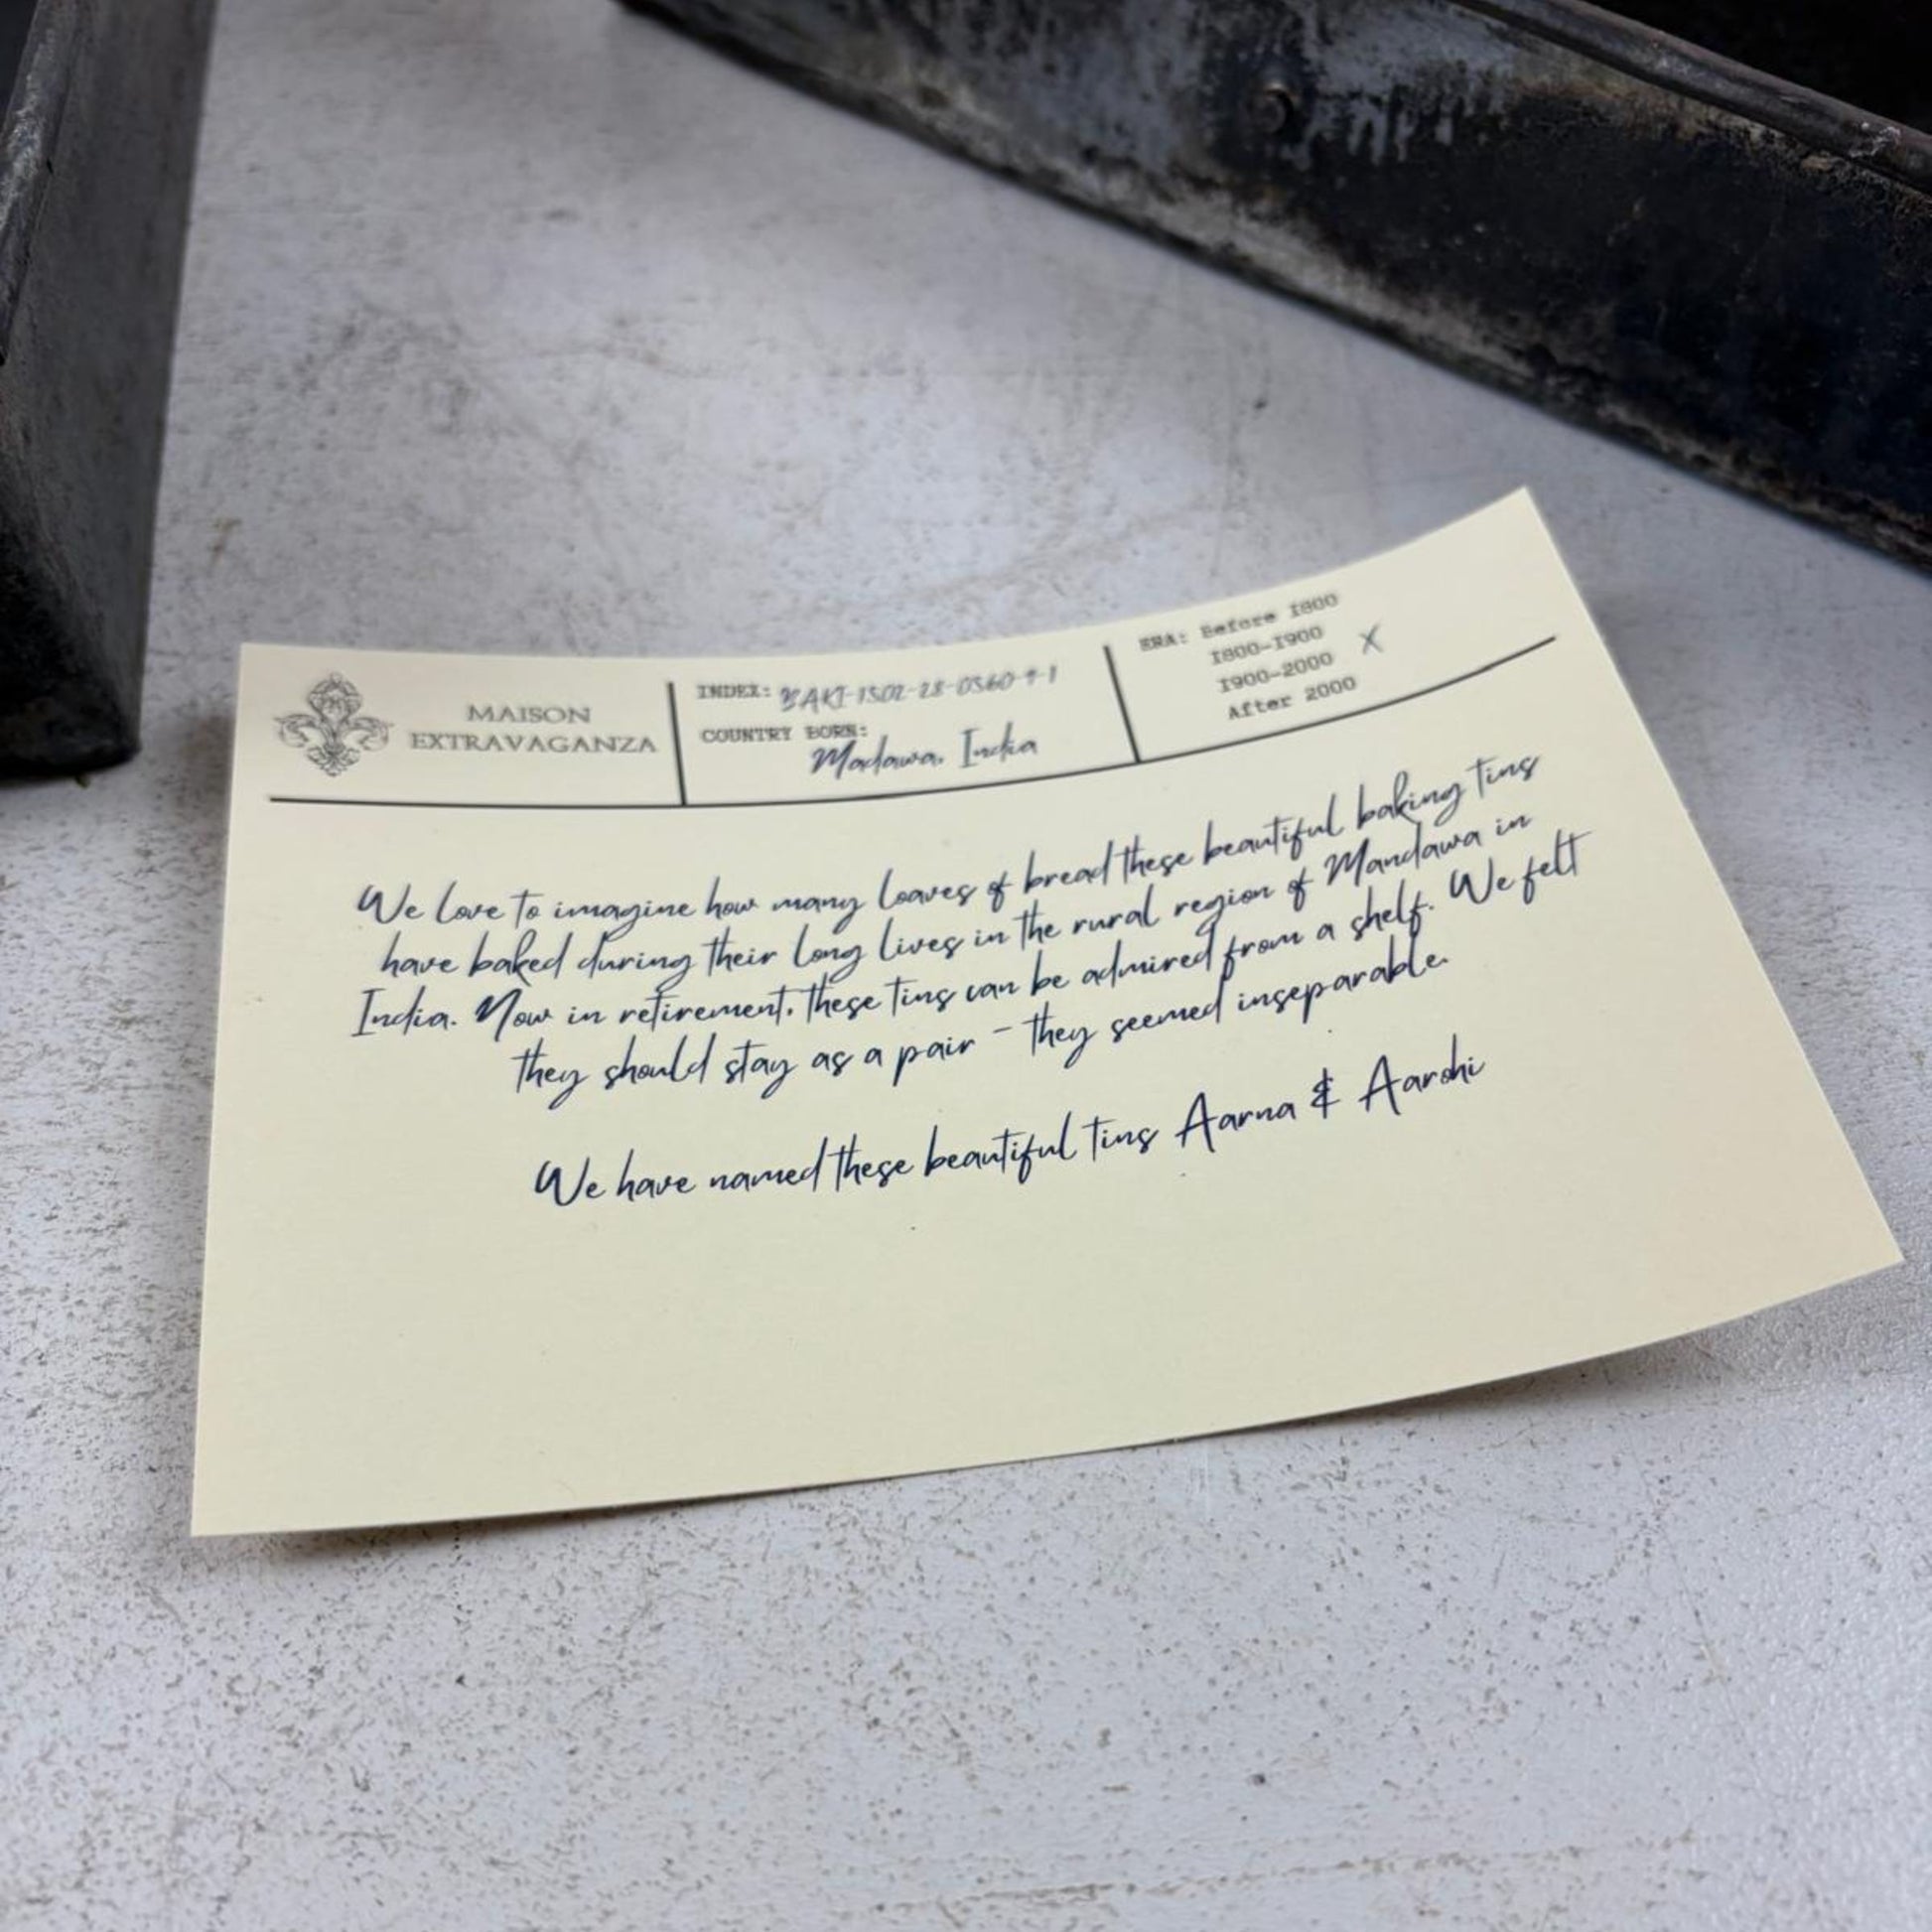 MAISON
EXTRAVAGANZA
INDEX:
COUNTRY BORN:
Madawa, India
ERA: Before 1800
1800-1900 X
1900-2000
After 2000
We love to imagine how many loaves of bread these beautiful baking tins
have baked during their long lives in the rural region of Mandawa in
India. Now in retirement, these tins can be admired from a shelf. We felt
they should stay as a pair - they seemed inseparable.
We have named these beautiful tins Aarna & Aarohi